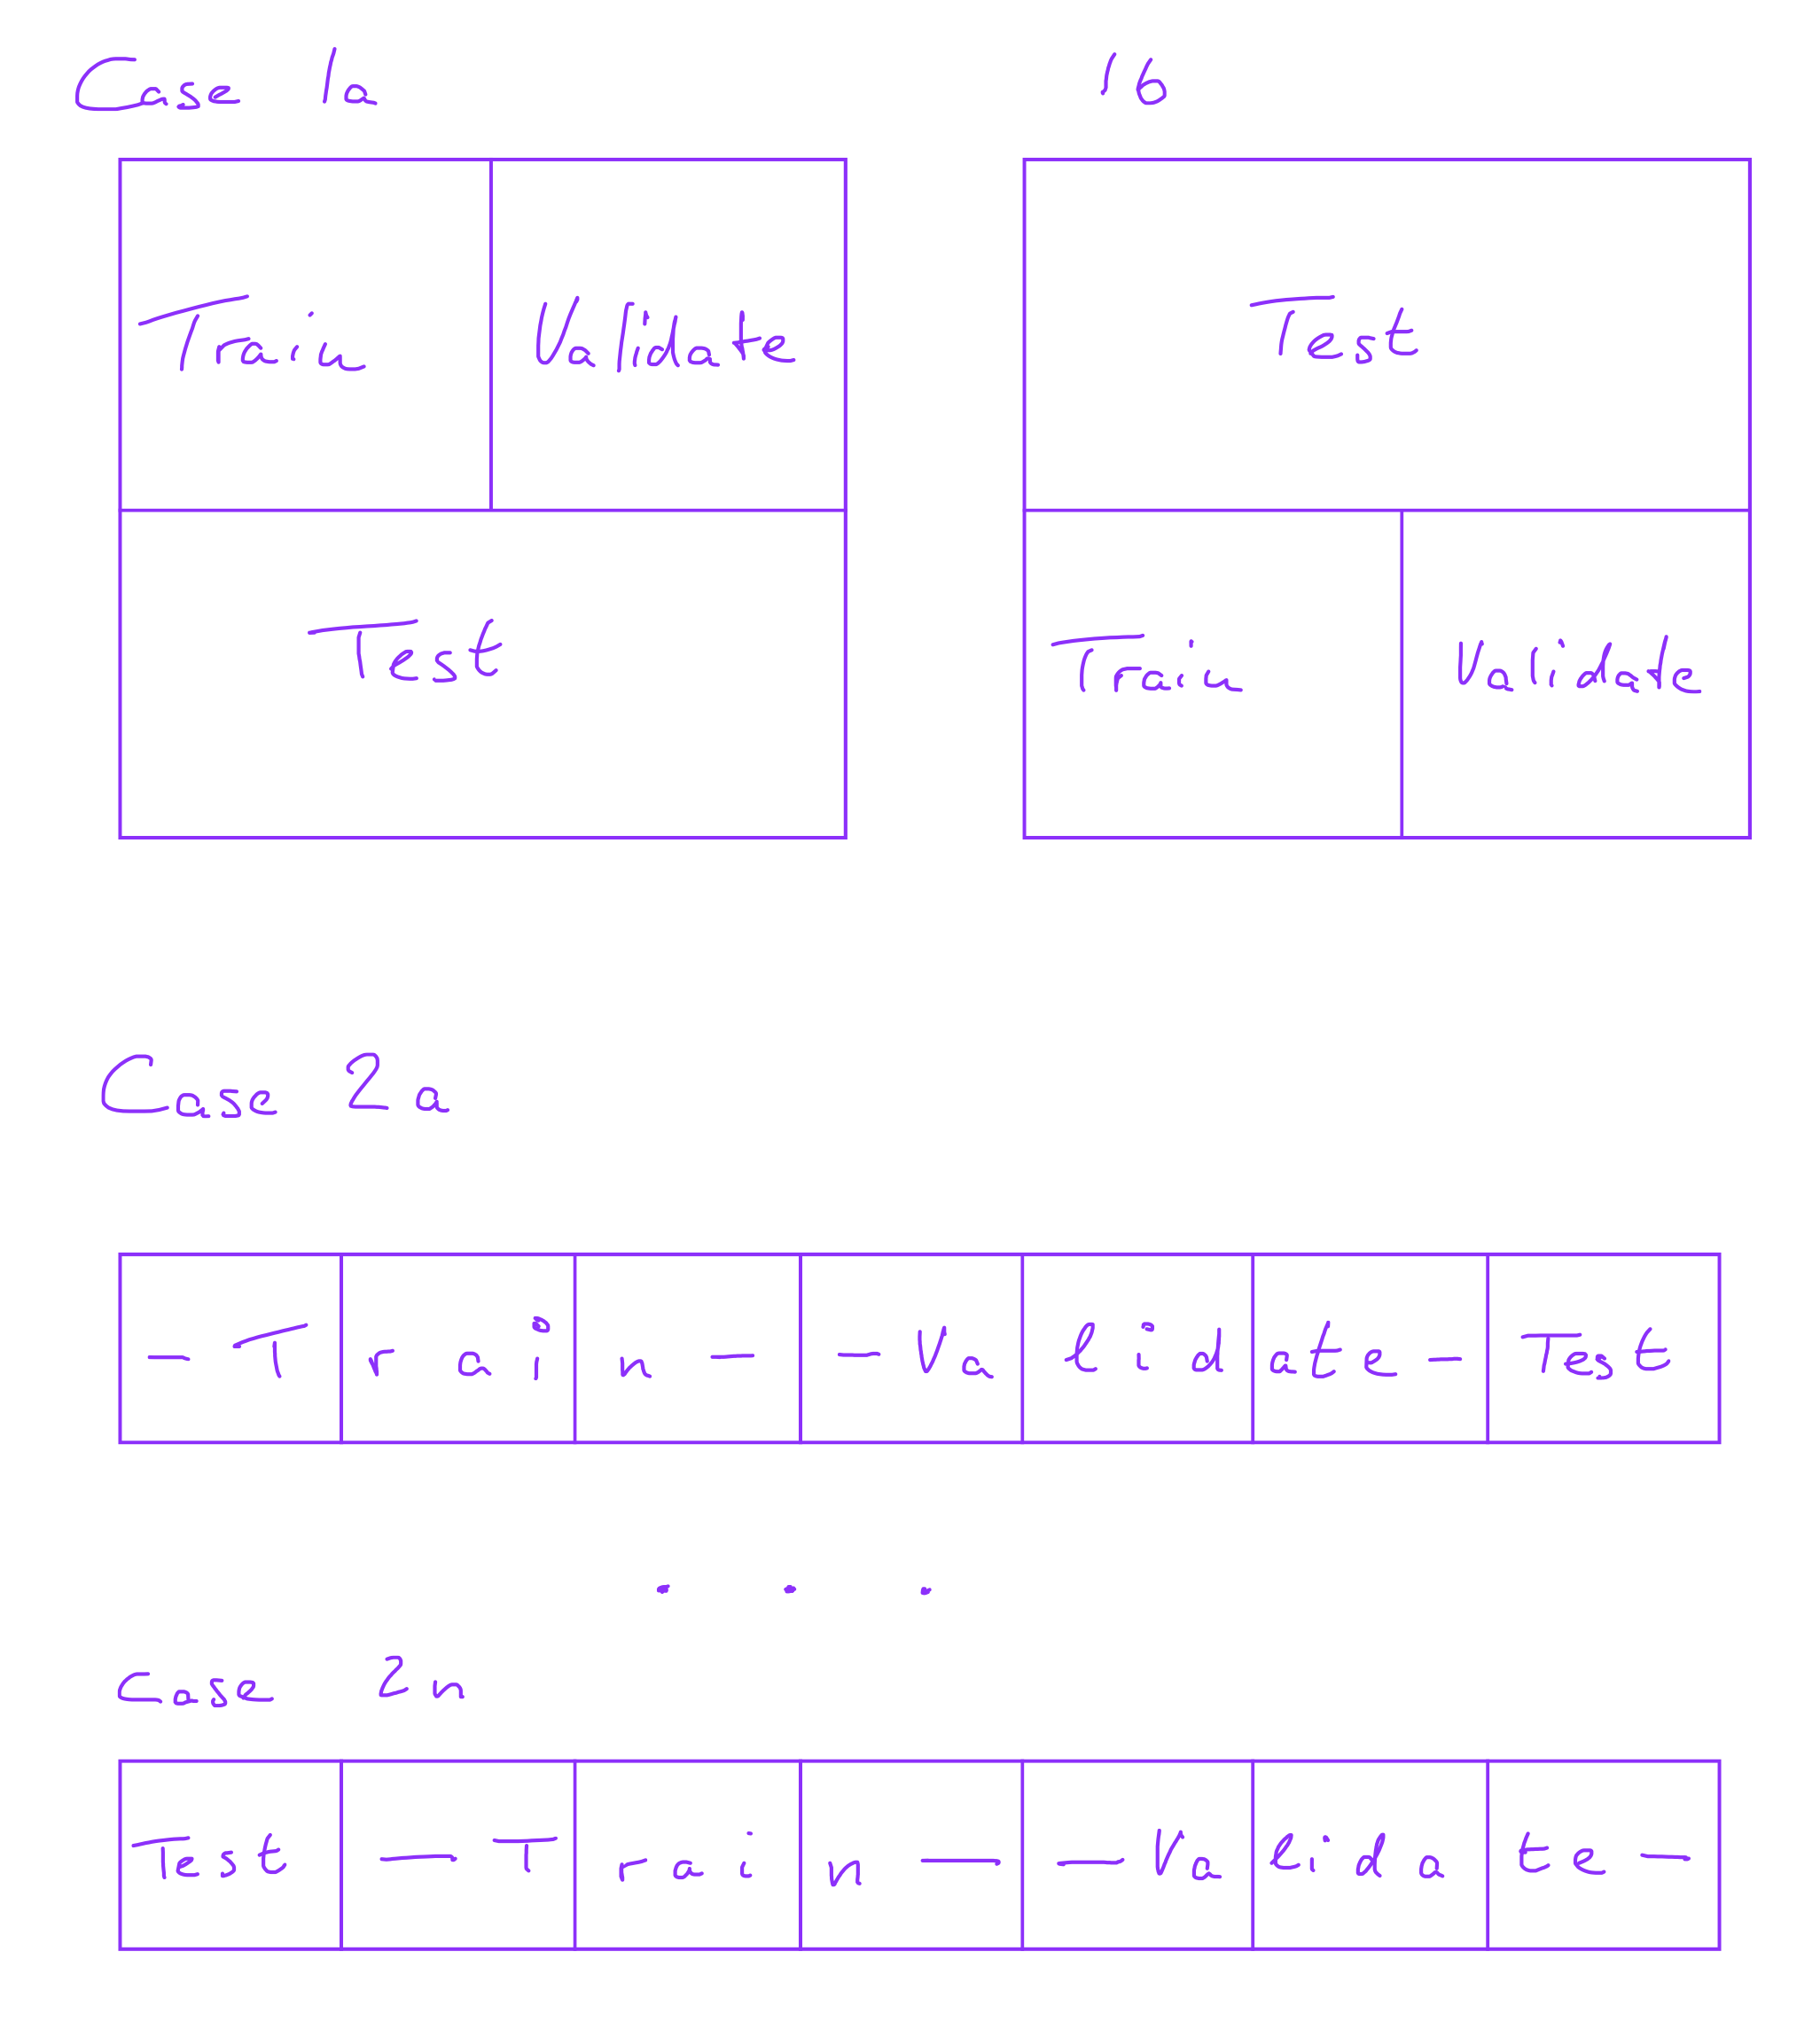 Case 1a 1b
Train Validate Test
Test Train Validate
Case 2a
- Train - - Validate - Test
. . .
Case 2n
Test - Train - - Validate -